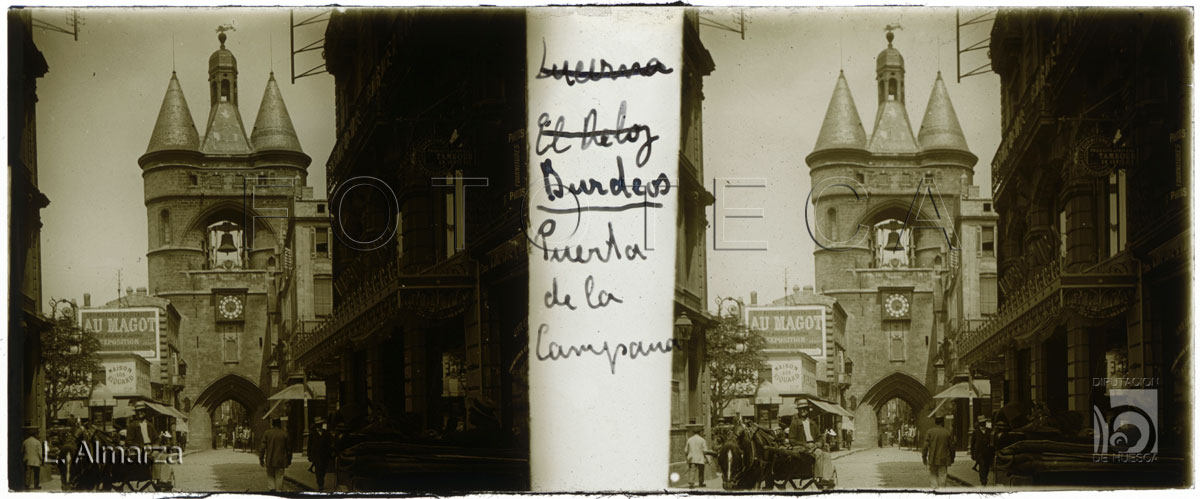 Lucerna
El Reloj
Burdeos
Puerta
de la
Campana
FOTOTECA
AU MAGOT
EXPOSITION
MAISON
AU MAGOT
MAISON
L. Almarza
DIPUTACION
DE HUESCA